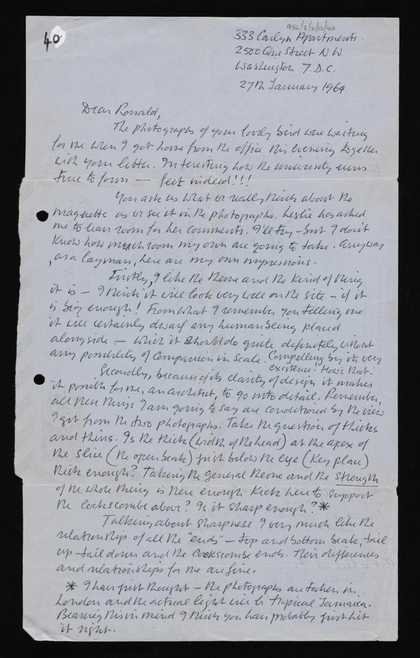 40
333 Carlyn Apartments
2500 Que Street N.W.
Washington 7. D.C.
27th January 1964
Dear Ronald,
The photographs of your lovely bird were waiting
for me when I got home from the office this evening together
with your letter. Interesting how the university runs
true to form — feet indeed!!!
You ask us what we really think about the
maquette as we see it in the photographs. Leslie has asked
me to leave room for her comments. I'll try – but I don't
know how much room my own are going to take. Anyway
, as a layman, here are my own impressions.
Firstly, I like the theme and the kind of thing
it is – I think it will look very well on the site – if it
is big enough! From what I remember you telling me
it will certainly dwarf any human being placed
alongside – which it should do quite definitely without
any possibility of comparison in scale. Compelling by its very
existence. I love that.
Secondly, because of its clarity of design it makes
it possible for me, an architect, to go into detail. Remember,
all these things I am going to say are conditioned by the view
I get from the two photographs. Take the question of thicks
and thins. Is the thick (width of the head) at the apex of
the slice (the open beak) just below the eye (key plan)
thick enough? Taking the general theme and the strength
of the whole thing is there enough thick here to support
the cockscombe above? Is it sharp enough? *
Talking about sharpness I very much like the
relationship of all the "ends" – top and bottom beak, tail
up – tail down and the cockscombe ends. Their differences
and relationships for me are fine.
* I have just thought – the photographs are taken in
London and the actual light will be tropical Jamaica.
Bearing this in mind I think you have probably just hit
it right.